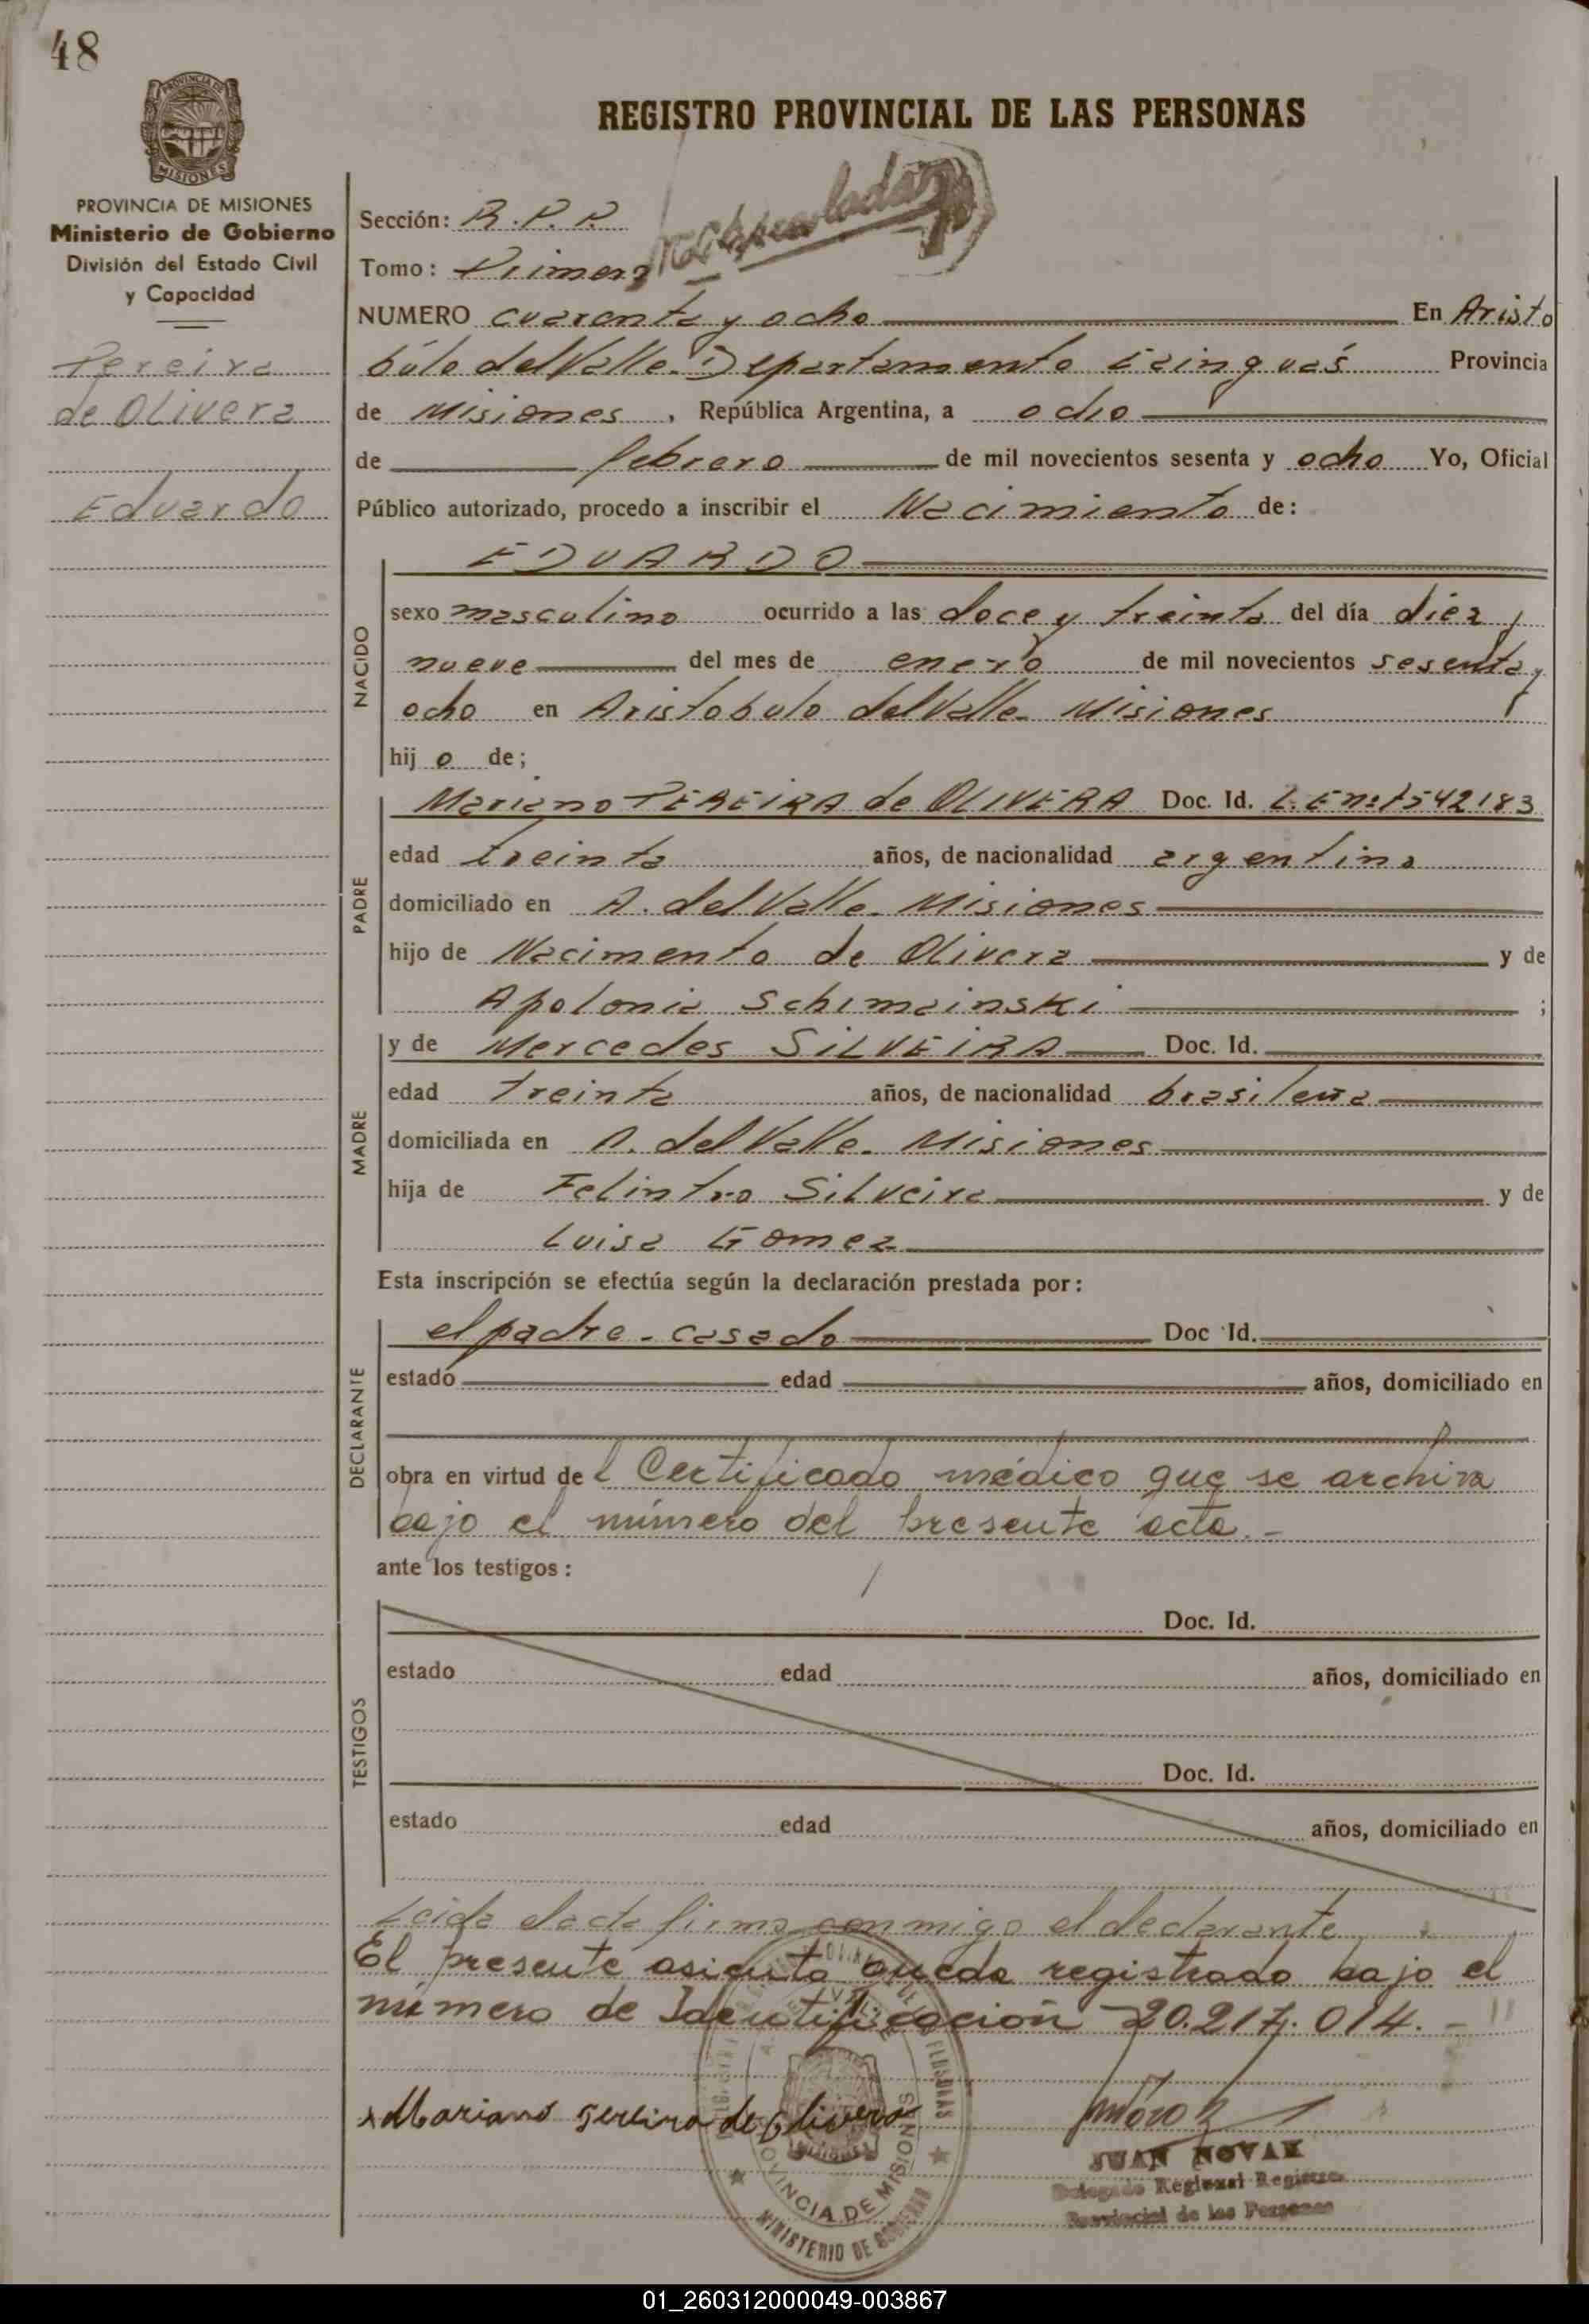 48
PROVINCIA DE
MISIONES
REGISTRO PROVINCIAL DE LAS PERSONAS
PROVINCIA DE MISIONES
Ministerio de Gobierno
División del Estado Civil
y Capacidad
Pereira
de Olivera
Eduardo
Sección: R.P.P.
Tomo: Primero
NUMERO cuarenta y ocho En Aristo
búlo del Valle. Departamento Cainguás Provincia
de Misiones, República Argentina, a ocho
de febrero de mil novecientos sesenta y ocho Yo, Oficial
Público autorizado, procedo a inscribir el Nacimiento de:
EDUARDO
NACIDO
sexo masculino ocurrido a las doce y treinta del día diez y
nueve del mes de enero de mil novecientos sesenta y
ocho en Aristobulo del Valle. Misiones
hij o de;
PADRE
Mariano PEREIRA de OLIVERA Doc. Id. L.E nº 7542183
edad treinta años, de nacionalidad argentina
domiciliado en A. del Valle. Misiones
hijo de Nacimento de Olivera y de
Apolonia Schimainski ;
MADRE
y de Mercedes SILVEIRA Doc. Id.
edad treinta años, de nacionalidad brasileña
domiciliada en A. del Valle. Misiones
hija de Felintro Silveira y de
Luisa Gomez
Esta inscripción se efectúa según la declaración prestada por:
DECLARANTE
el padre - casado Doc Id.
estado edad años, domiciliado en
obra en virtud del Certificado médico que se archiva
bajo el número del presente acta.-
ante los testigos:
TESTIGOS
Doc. Id.
estado edad años, domiciliado en
Doc. Id.
estado edad años, domiciliado en
Leida el acta firma conmigo el declarante
El presente asiento queda registrado bajo el
número de Identificación 20.217.014.-
Mariano Pereira de Olivera
JUAN NOVAK
Delegado Regional Registro
Provincial de las Personas
PROVINCIA DE MISIONES
MINISTERIO DE GOBIERNO
01_260312000049-003867